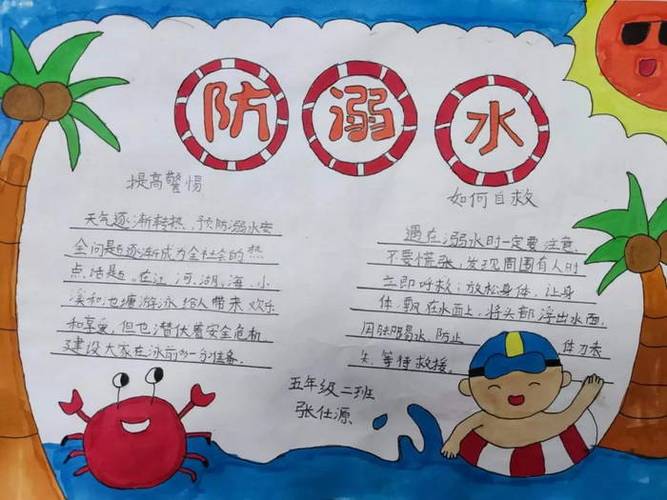 防溺水
提高警惕
天气逐渐转热,预防溺水安
全问题逐渐成为全社会的热
点话题。在江、河、湖、海、小
溪和池塘游泳给人带来欢乐
和享受,但也潜伏着安全危机
建设大家在泳前多一分准备.
如何自救
遇在溺水时一定要注意,
不要慌张,发现周围有人时
立即呼救;放松身体,让身
体飘在水面上,将头部浮出水面,
用脚踢水,防止体力丧
失,等待救援。
五年级二班
张仕源